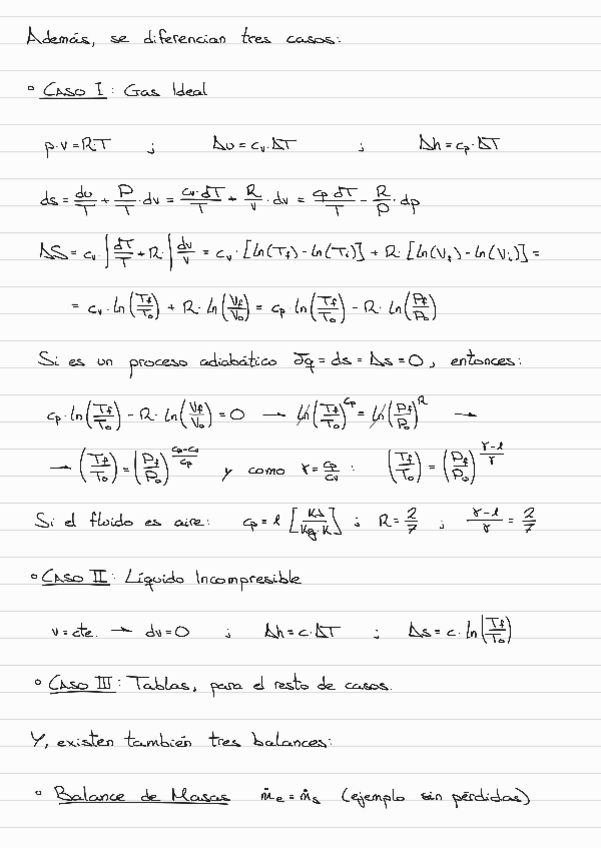 Además, se diferencian tres casos:
° CASO I: Gas Ideal
p·v=R·T ; Δu=cv·ΔT ; Δh=cp·ΔT
ds = du/T + P/T·dv = cv·dT/T + R/v·dv = cp·dT/T - R/P·dp
ΔS = cv ∫dT/T + R·∫dv/v = cv·[ln(Tf)-ln(Ti)] + R·[ln(Vf)-ln(Vi)] =
= cv·ln(Tf/To) + R·ln(Vf/Vo) = cp·ln(Tf/To) - R·ln(Pf/Po)
Si es un proceso adiabático δq = ds = Δs = 0, entonces:
cp·ln(Tf/To) - R·ln(Vf/Vo) = 0 → ln(Tf/To)^cp = ln(Pf/Po)^R →
→ (Tf/To) = (Pf/Po)^(cp-cv)/cp y como γ = cp/cv : (Tf/To) = (Pf/Po)^(γ-1)/γ
Si el fluido es aire: cp = 1 [KJ/Kg·K] ; R = 2/7 ; (γ-1)/γ = 2/7
° CASO II: Líquido Incompresible
v = cte. → dv = 0 ; Δh = c·ΔT ; Δs = c·ln(Tf/To)
° CASO III: Tablas, para el resto de casos.
Y, existen también tres balances:
° Balance de Masas ṁe = ṁs (ejemplo sin pérdidas)